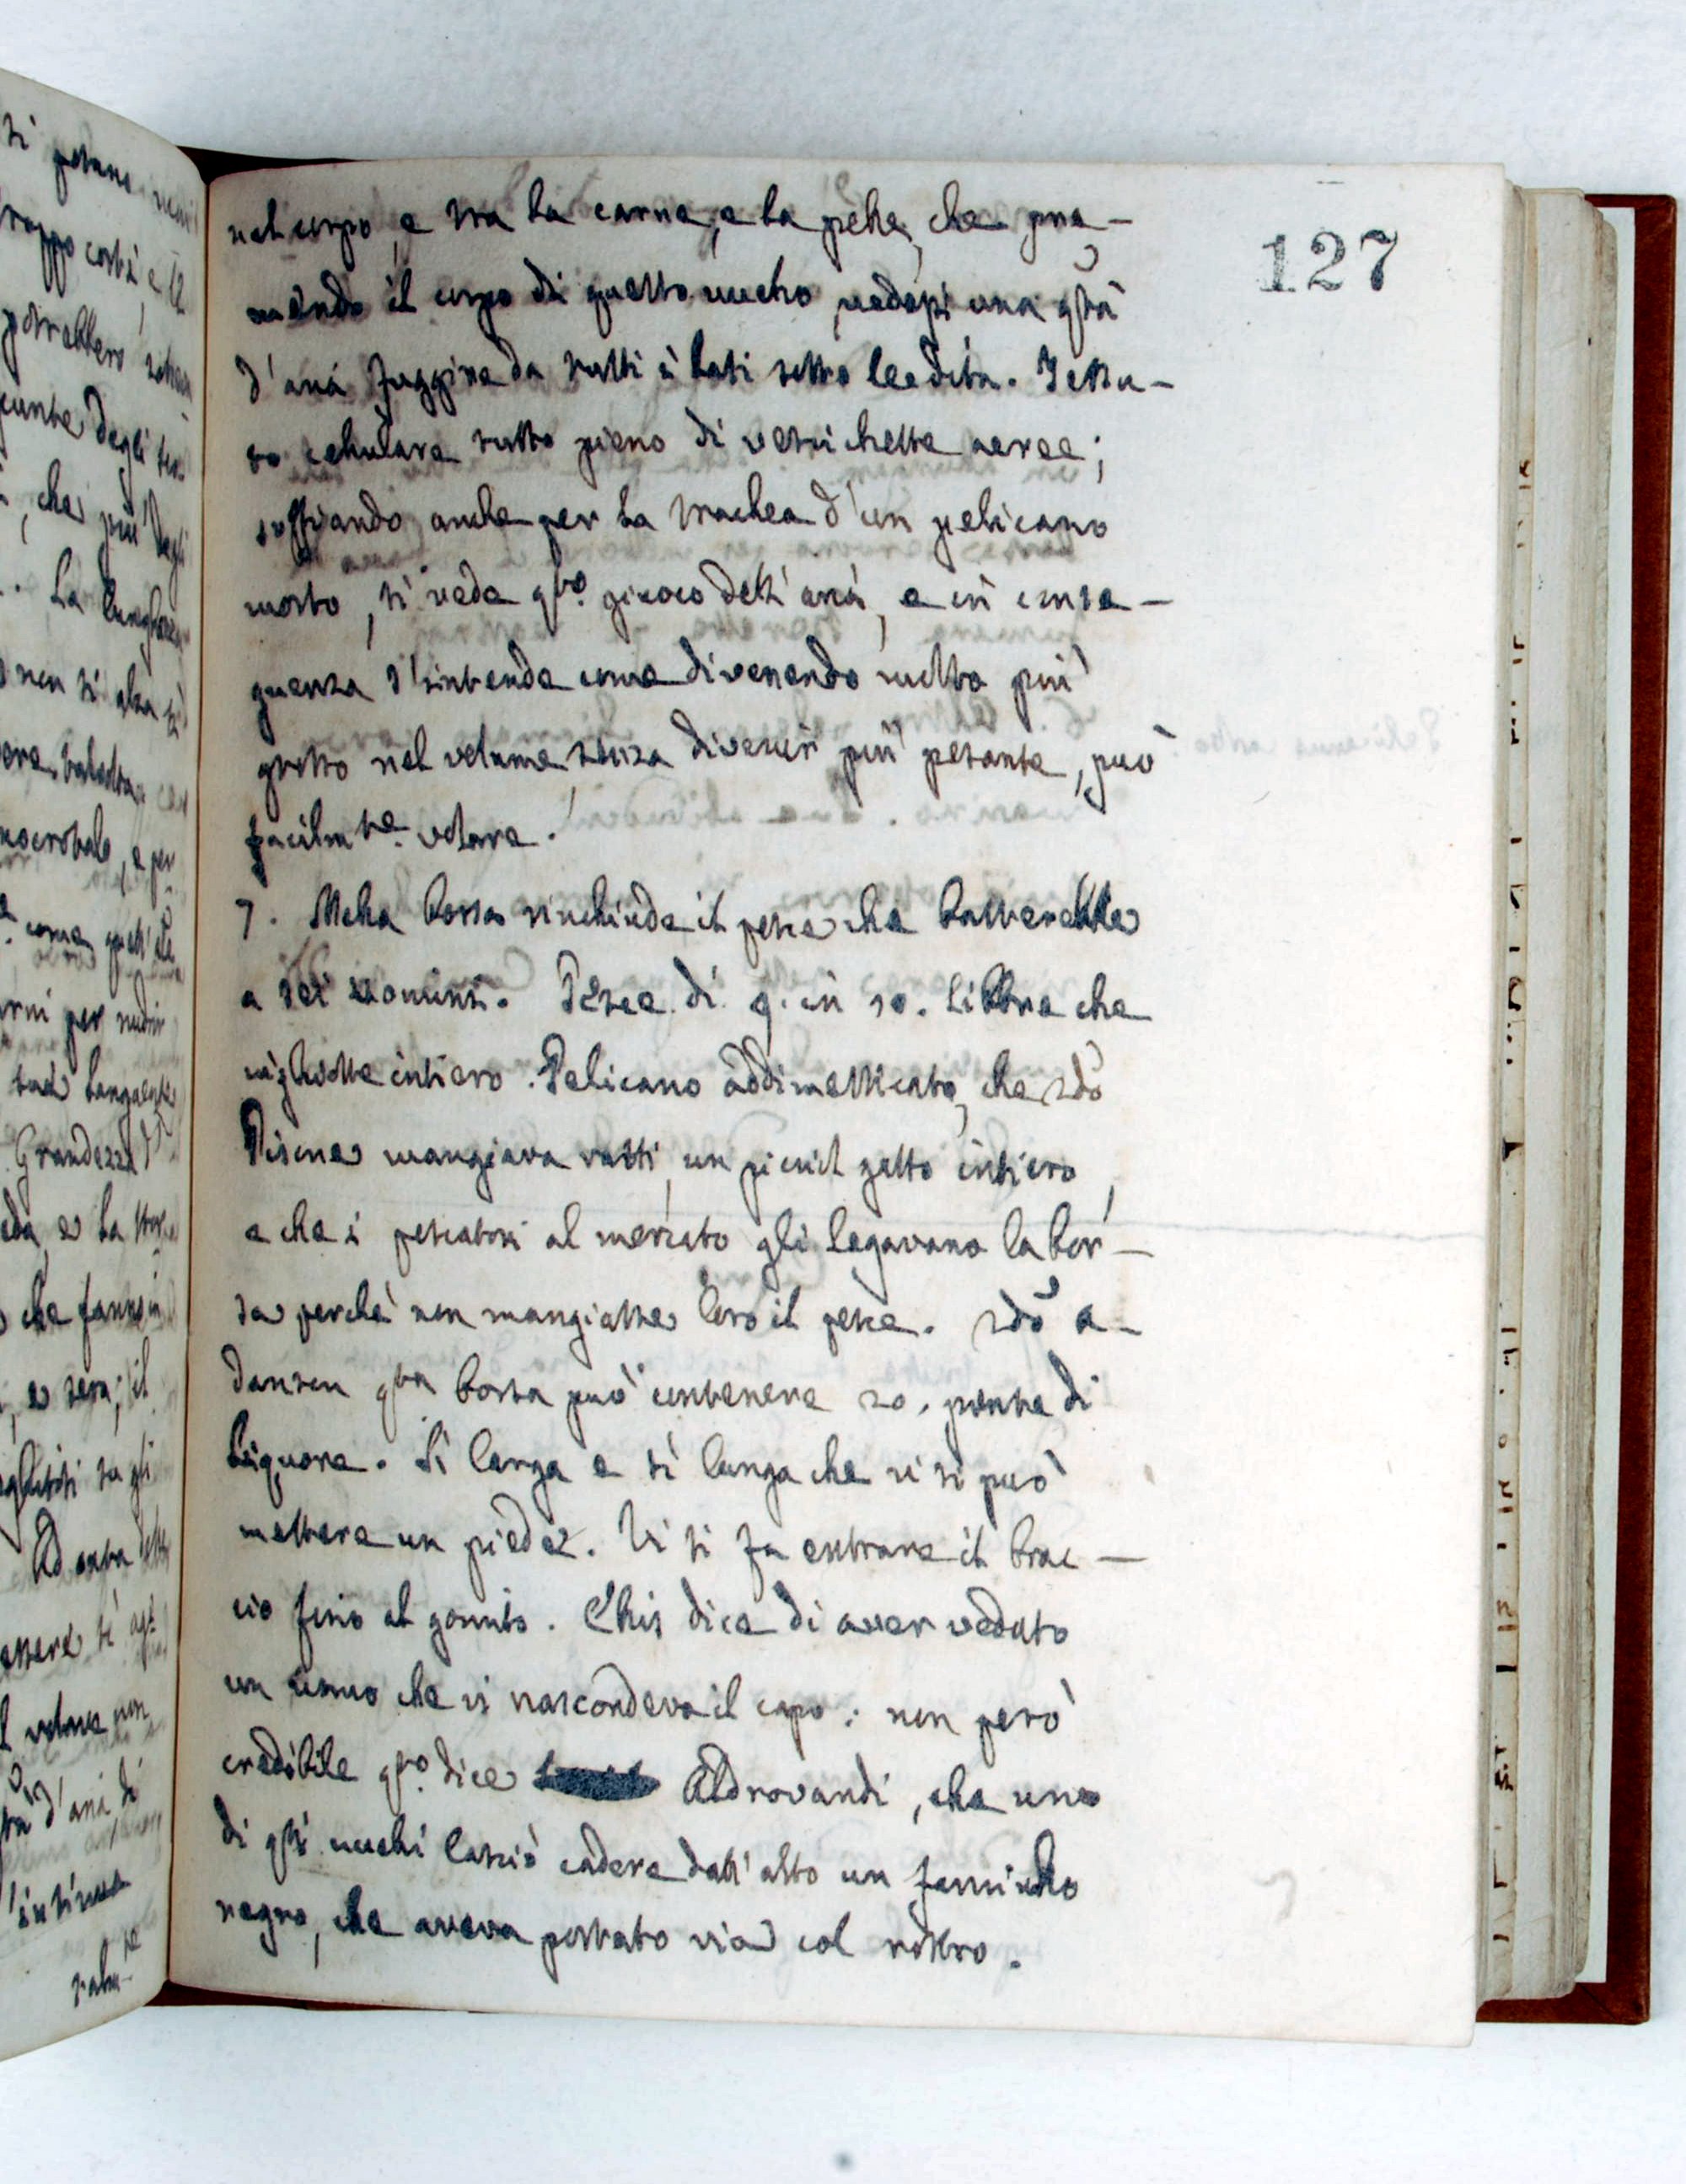 127
nel corpo, e tra la carne, e la pelle, che pre-
mendo il corpo di questo uccello, vedesi una qtà
d'aria fuggire da tutti i lati sotto le dita. Tessu-
to cellulare tutto pieno di vescichette aeree;
soffiando anche per la trachea d'un pelicano
morto, si vede qto. giuoco dell'aria, e in conse-
guenza s'intende come divenendo molto più
grosso nel volume senza divenir più pesante, può
facilmte. volare.
7. Nella borsa rinchiude il pesce che basterebbe
a sei uomini. Pesce di 9. in 10. libbre che
inghiotte intiero. Pelicano addimesticato, che sdo
Pisone mangiava ratti, un piccil gatto intiero,
e che i pescatori al mercato gli legavano la bor-
sa perchè non mangiasse loro il pesce. sdo A-
danson qta borsa può contenere 20. pinte di
liquore. Sì larga e sì lunga che vi si può
mettere un piede. Vi si fa entrare il brac-
cio fino al gomito. Ellis dice di aver veduto
un uomo che vi nascondeva il capo: non però
credibile qto. dice Aldrovandi, che uno
di qti uccelli lasciò cadere dall'alto un fanciullo
negro, che aveva portato via col rostro.